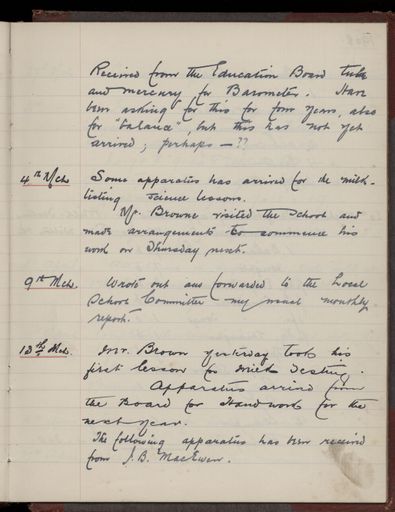 Received from the Education Board tube
and mercury for Barometer. Have
been asking for this for four years, also
for "balance", but this has not yet
arrived; perhaps — ??
4th Mch. Some apparatus has arrived for the milk-
testing science lessons.
Mr. Browne visited the School and
made arrangements to commence his
work on Thursday next.
9th Mch. Wrote out and forwarded to the Local
School Committee my usual monthly
report.
13th Mch. Mr. Brown yesterday took his
first lesson for Milk Testing.
Apparatus arrived from
the Board for Handwork for the
next year.
The following apparatus has been received
from J.B. MacEwen.